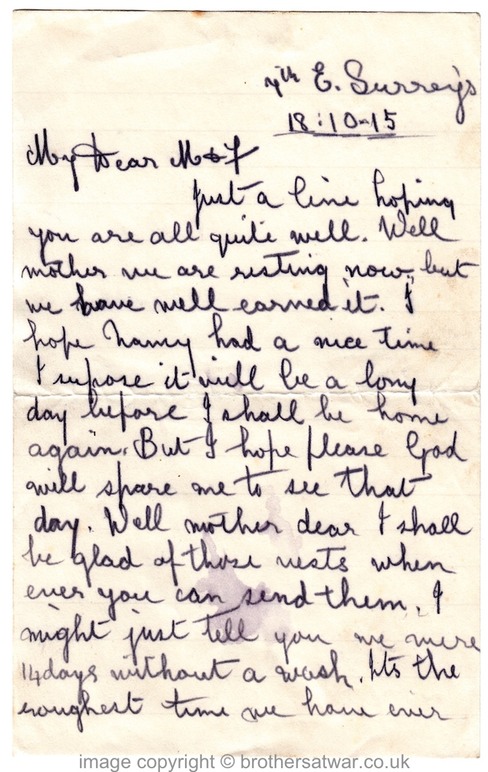 7th E. Surrey's
18:10-15
My Dear M & F
Just a line hoping
you are all quite well. Well
mother we are resting now, but
we have well earned it. I
hope Nancy had a nice time
I supose it will be a long
day before I shall be home
again. But I hope please God
will spare me to see that
day. Well mother dear I shall
be glad of those vests when
ever you can send them. I
might just tell you we were
14 days without a wash. Its the
roughest time we have ever
image copyright © brothersatwar.co.uk